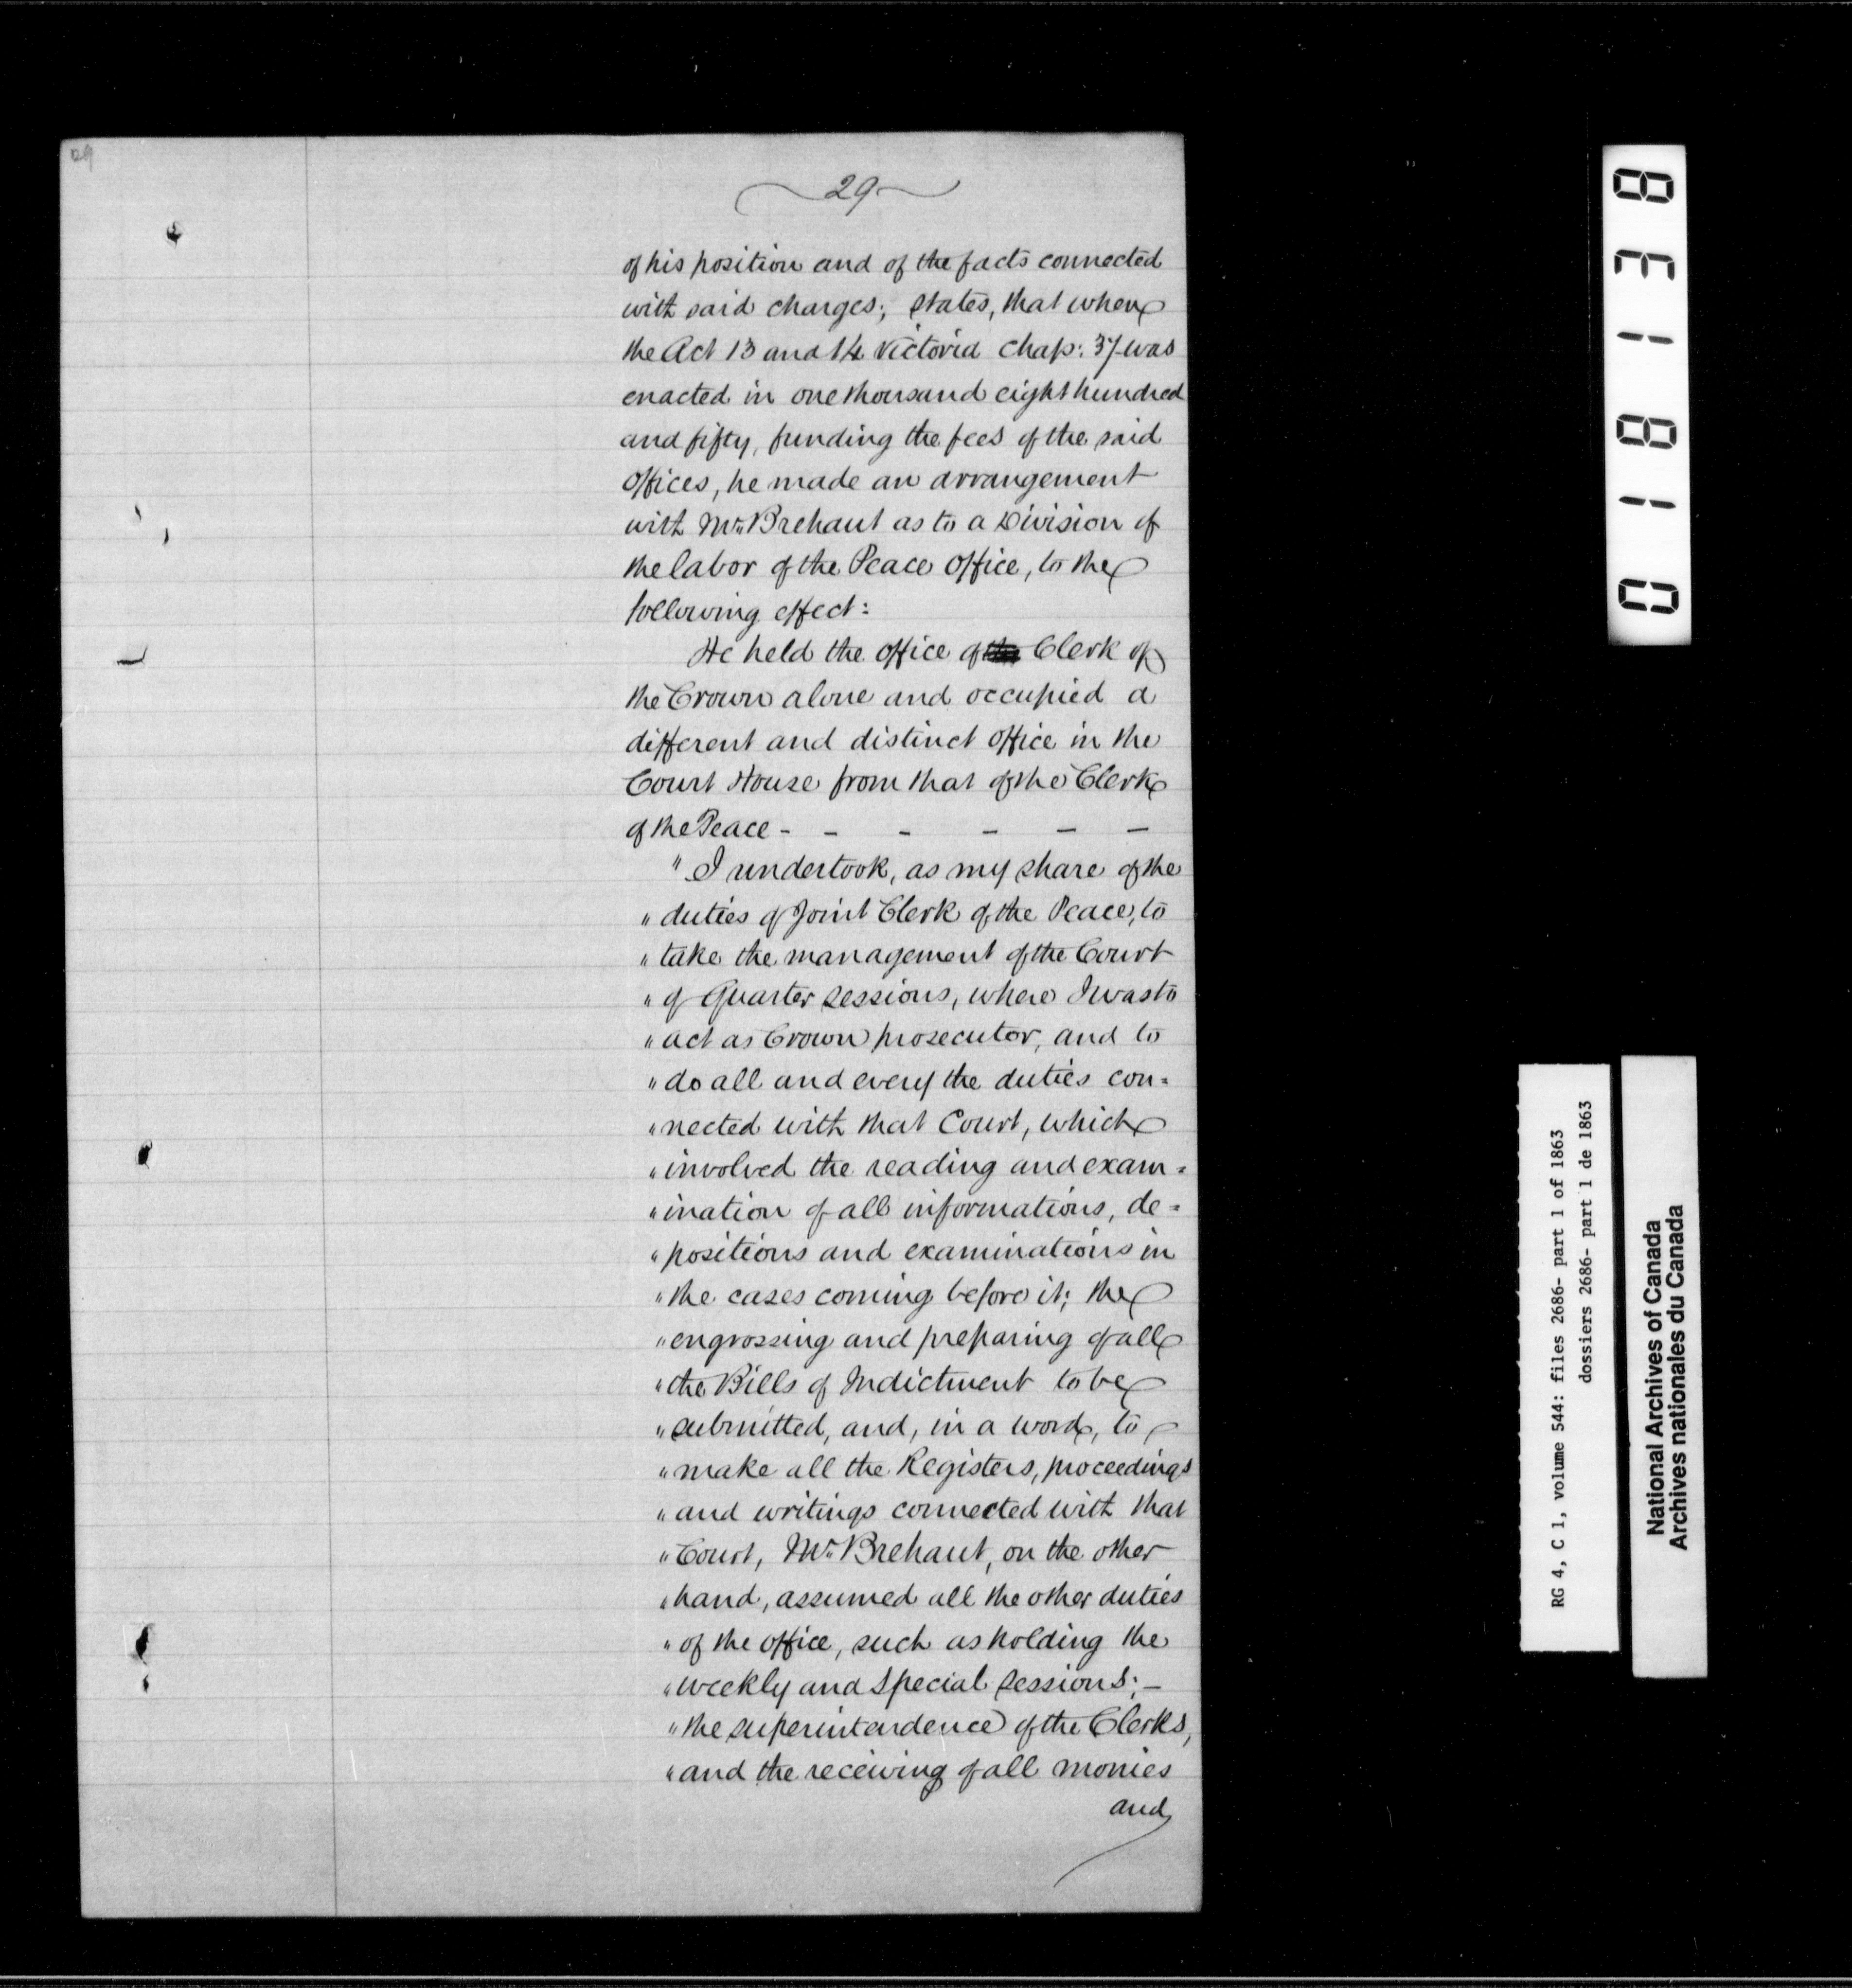 29
29
of his position and of the facts connected
with said charges; states, that when
the Act 13 and 14 Victoria Chap: 37 was
enacted in one thousand eight hundred
and fifty, funding the fees of the said
Offices, he made an arrangement
with Mr. Brehaut as to a Division of
the labor of the Peace Office, to the
following effect:
He held the office of Clerk of
the Crown alone and occupied a
different and distinct office in the
Court House from that of the Clerk
of the Peace - - - - - -
" I undertook, as my share of the
" duties of Joint Clerk of the Peace, to
" take the management of the Court
" of Quarter sessions, where I was to
" act as Crown prosecutor, and to
" do all and every the duties con=
" nected with that Court, which
" involved the reading and exam=
" ination of all informations, de=
" positions and examinations in
" the cases coming before it; the
" engrossing and preparing of all
" the Bills of Indictment to be
" submitted, and, in a word, to
" make all the Registers, proceedings
" and writings connected with that
" Court, Mr. Brehaut, on the other
" hand, assumed all the other duties
" of the office, such as holding the
" weekly and Special sessions; –
" the superintendence of the Clerks,
" and the receiving of all monies
and
018138
RG 4, C 1, volume 544: files 2686- part 1 of 1863
dossiers 2686- part 1 de 1863
National Archives of Canada
Archives nationales du Canada